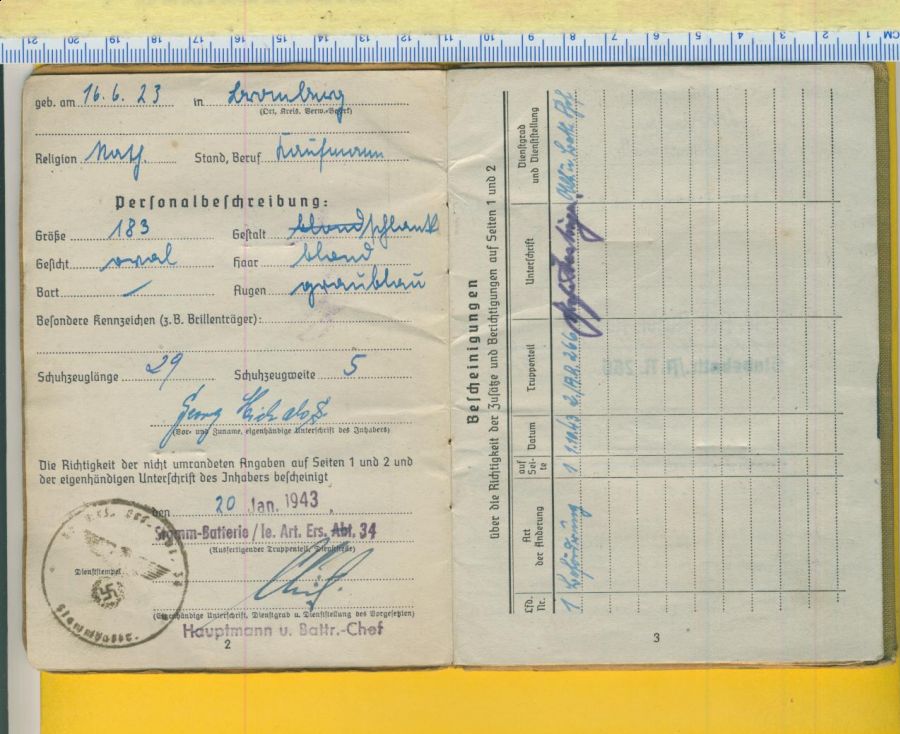 21 20 19 18 17 16 15 14 13 12 11 10 9 8 7 6 5 4 3 2 1 CM
geb. am 16.6.23 in Bromberg
(Ort, Kreis, Verw.-Bezirk)
Religion Kath. Stand, Beruf Kaufmann
Personalbeschreibung:
Größe 183 Gestalt blond schlank
Gesicht oval Haar blond
Bart / Augen graublau
Besondere Kennzeichen (z.B. Brillenträger):
Schuhzeuglänge 29 Schuhzeugweite 5
Georg
(Vor- und Zuname, eigenhändige Unterschrift des Inhabers)
Die Richtigkeit der nicht umrandeten Angaben auf Seiten 1 und 2 und
der eigenhändigen Unterschrift des Inhabers bescheinigt
den 20 Jan. 1943
Stamm-Batterie/le. Art. Ers. Abt. 34
(Ausfertigender Truppenteil, Dienststelle)
Dienststempel
(Eigenhändige Unterschrift, Dienstgrad u. Dienststellung des Vorgesetzten)
Hauptmann u. Battr.-Chef
2
Bescheinigungen
über die Richtigkeit der Zusätze und Berichtigungen auf Seiten 1 und 2
Lfd. Nr. Art der Änderung auf Seite Datum Truppenteil Unterschrift Dienstgrad und Dienststellung
1 Beförderung 1 1.10.43 2./A.R. 266
3